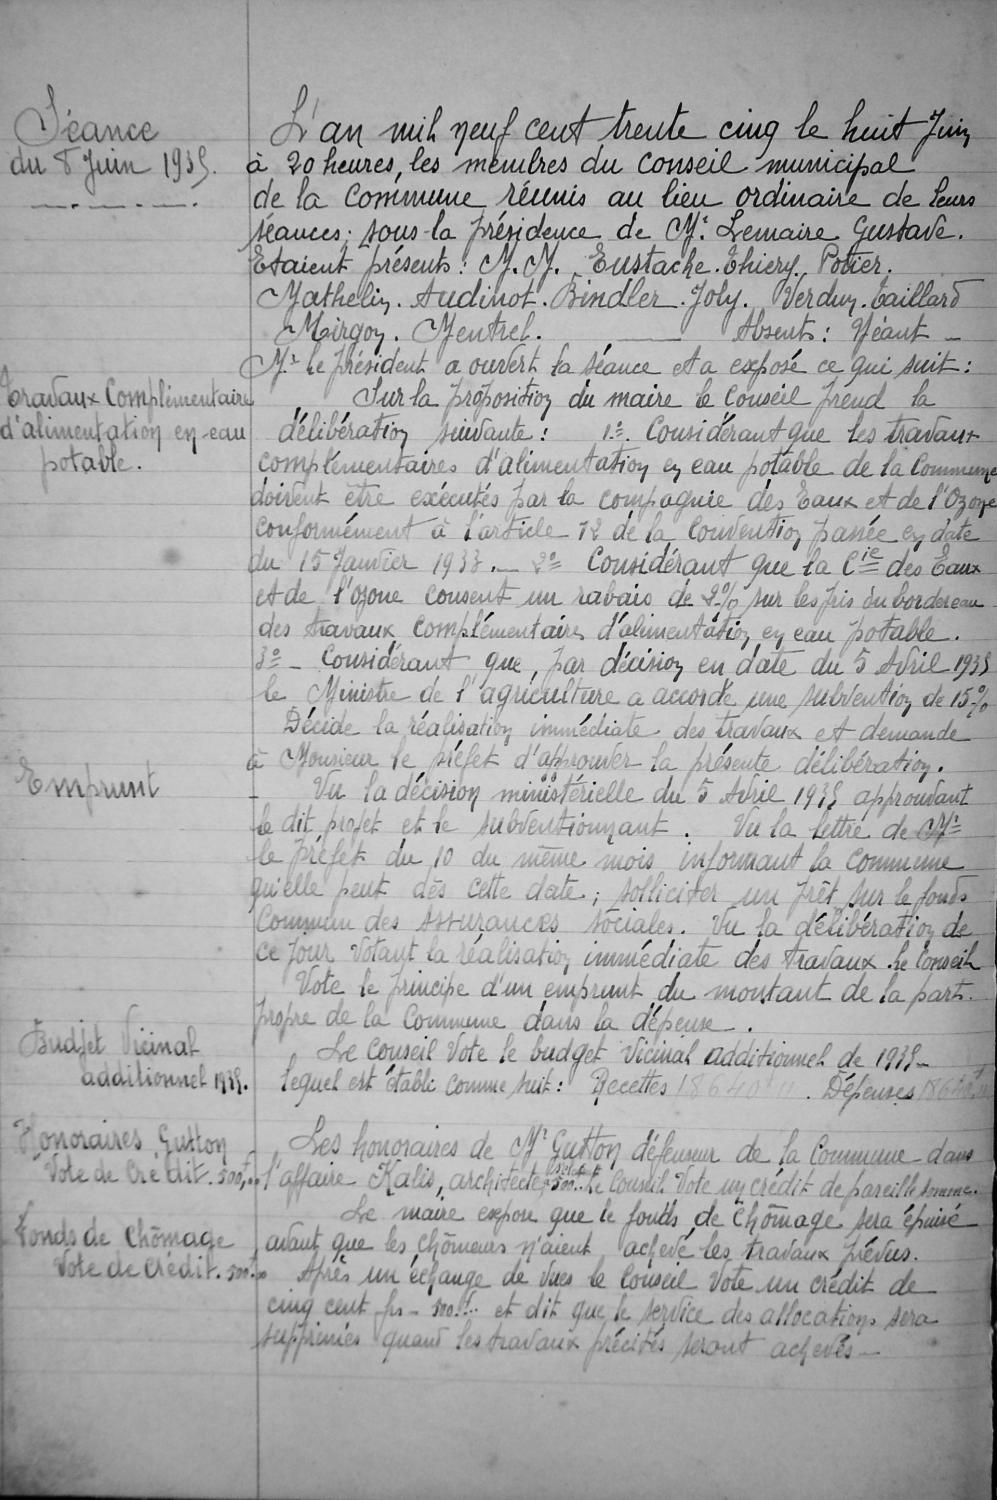 Séance
du 8 Juin 1935.
L'an mil neuf cent trente cinq le huit Juin
à 20 heures, les membres du Conseil municipal
de la Commune réunis au lieu ordinaire de leurs
séances, sous la présidence de Mr. Lemaire Gustave.
Etaient présents : M.M. Eustache. Thiery. Potier.
Mathelin. Audinot. Bindler. Joly. Verdun. Taillard
Mirgon. Mentrel. — Absents : Néant —
Mr le Président a ouvert la séance et a exposé ce qui suit :
Travaux Complémentaire
d'alimentation en eau
potable.
Sur la proposition du maire le Conseil prend la
délibération suivante : 1º. Considérant que les travaux
complémentaires d'alimentation en eau potable de la Commune
doivent être exécutés par la compagnie des Eaux et de l'Ozone
conformément à l'article 12 de la Convention passée en date
du 15 Janvier 1933. — 2º Considérant que la Cie des Eaux
et de l'ozone consent un rabais de 2% sur les pris du bordereau
des travaux complémentaires d'alimentation en eau potable.
3º – Considérant que, par décision en date du 5 Avril 1935
le Ministre de l'agriculture a accordé une subvention de 15%
Décide la réalisation immédiate des travaux et demande
à Monsieur le préfet d'approuver la présente délibération.
Emprunt
— Vu la décision ministérielle du 5 Avril 1935 approuvant
le dit projet et le subventionnant. Vu la lettre de Mr
le Préfet du 10 du même mois informant la commune
qu'elle peut dès cette date ; solliciter un prêt sur le fonds
Commun des assurances sociales. Vu la délibération de
ce jour votant la réalisation immédiate des travaux. Le Conseil
Vote le principe d'un emprunt du montant de la part
propre de la Commune dans la dépense —.
Budjet Vicinal
additionnel 1935.
Le Conseil Vote le budget Vicinal additionnel de 1935 –
lequel est établi comme suit : Recettes 18640f . Dépenses
Honoraires Gutton
Vote de Crédit. 500f,00
Les honoraires de Mr Gutton défenseur de la Commune dans
l'affaire Kalis, architecte, 500f. Le Conseil Vote un crédit de pareille somme.
Fonds de Chômage
Vote de Crédit. 500f,00
Le maire expose que le fonds de Chômage sera épuisé
avant que les chômeurs n'aient achevé les travaux prévus.
Après un échange de vues le Conseil Vote un crédit de
cinq cent frs – 500f. et dit que le service des allocations sera
supprimés quand les travaux précités seront achevés —